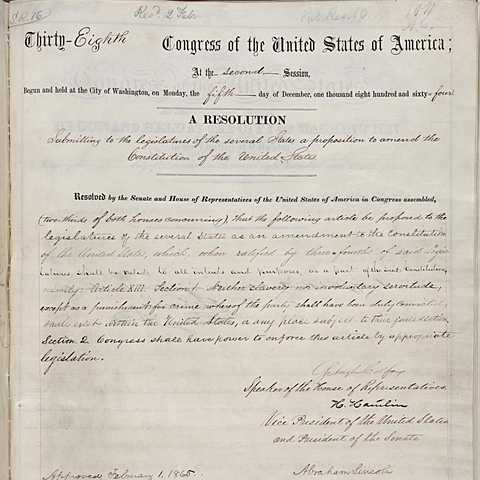 Thirty-Eighth Congress of the United States of America;
At the second Session,
Begun and held at the City of Washington, on Monday, the fifth day of December, one thousand eight hundred and sixty-four
A RESOLUTION
Submitting to the legislatures of the several States a proposition to amend the
Constitution of the United States
Resolved by the Senate and House of Representatives of the United States of America in Congress assembled,
(two-thirds of both houses concurring), That the following article be proposed to the
legislatures of the several States as an amendment to the Constitution
of the United States, which, when ratified by three-fourths of said Legis-
latures shall be valid, to all intents and purposes, as a part of the said Constitution,
namely: Article XIII. Section 1. Neither slavery nor involuntary servitude,
except as a punishment for crime whereof the party shall have been duly convicted,
shall exist within the United States, or any place subject to their jurisdiction.
Section 2. Congress shall have power to enforce this article by appropriate
legislation.
Schuyler Colfax
Speaker of the House of Representatives.
H. Hamlin
Vice President of the United States
and President of the Senate
Approved, February 1, 1865.
Abraham Lincoln